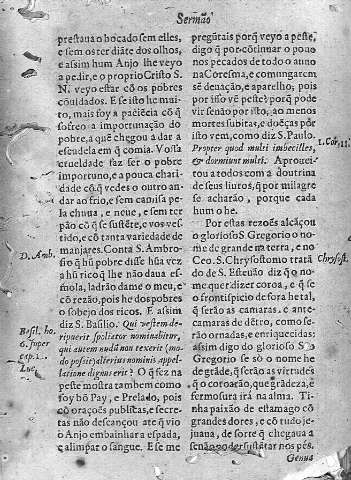 Sermão
prestaua o bocado sem elles,
e sem os ter diãte dos olhos,
e assim hum Anjo lhe veyo
a pedir, e o proprio Cristo S.
N. veyo estar cõ os pobres
cõuidados. E se isto he mui-
to, mais foy a paciẽcia cõ q̃
sofreo a importunação do
pobre, a quẽ chegou a dar a
escudela em q̃ comia. Vossa
crueldade faz ser o pobre
importuno, e a pouca chari-
dade cõ q̃ vedes o outro an-
dar ao frio, e sem camisa pe-
la chuua, e neue, e sem ter
pão cõ q̃ se sustẽte, e vos ves-
tido, e cõ tanta variedade de
manjares. Conta S. Ambro-
D. Amb.
sio q̃ hũ pobre disse hũa vez
a hũ rico q̃ lhe não daua es-
mola, ladrão dame o meu, e
cõ rezão, pois he dos pobres
o sobejo dos ricos. E assim
diz S. Basilio. Qui vestem de-
Basil. ho.
ripuerit spoliator nominabitur,
6. super
qui autem nudũ non texerit (mo-
cap. 1.
do possit) alterius nominis appel-
Luc.
latione dignus erit? O q̃ fez na
peste mostra tambem como
foy bõ Pay, e Prelado, pois
cõ oraçoẽs publicas, e secre-
tas não descançou atè q̃ vio
o Anjo embainhar a espada,
e alimpar o sangue. E se me
pregũtais porq̃ veyo a peste,
digo q̃ por cõtinuar o pouo
nos pecados de todo o anno
na Coresma, e comungarem
sẽ deuação, e aparelho, pois
por isso vẽ peste? porq̃ pode
vir senão por isto, ao menos
mortes subitas, e doẽças por
isto vem, como diz S. Paulo.
Propter quod multi imbecilles,
1. Cor. 11.
& dormiunt multi. Aprouei-
tou a todos com a doutrina
de seus liuros, q̃ por milagre
se acharão, porque cada
hum o he.
Por estas rezoẽs alcãçou
o glorioso S Gregorio o no-
me de grande na terra, e no
Ceo. S. Chrysostomo tratã
do de S. Esteuão diz q̃ o no-
Chrysost.
me quer dizer coroa, e q̃ se
o frontispicio de fora he tal,
q̃ serão as camaras, e ante-
camaras de dẽtro, como se-
rão ornadas, e enriquecidas:
assim digo do glorioso S.
Gregorio se sò o nome he
de grãde, q̃ serão as virtudes
q̃ o coroarão, que grãdeza, e
fermosura irá na alma. Ti-
nha paixão de estamago cõ
grandes dores, e cõ tudo je-
juaua, de sorte q̃ chegaua a
senão poder sustẽtar nos pès.
Genua